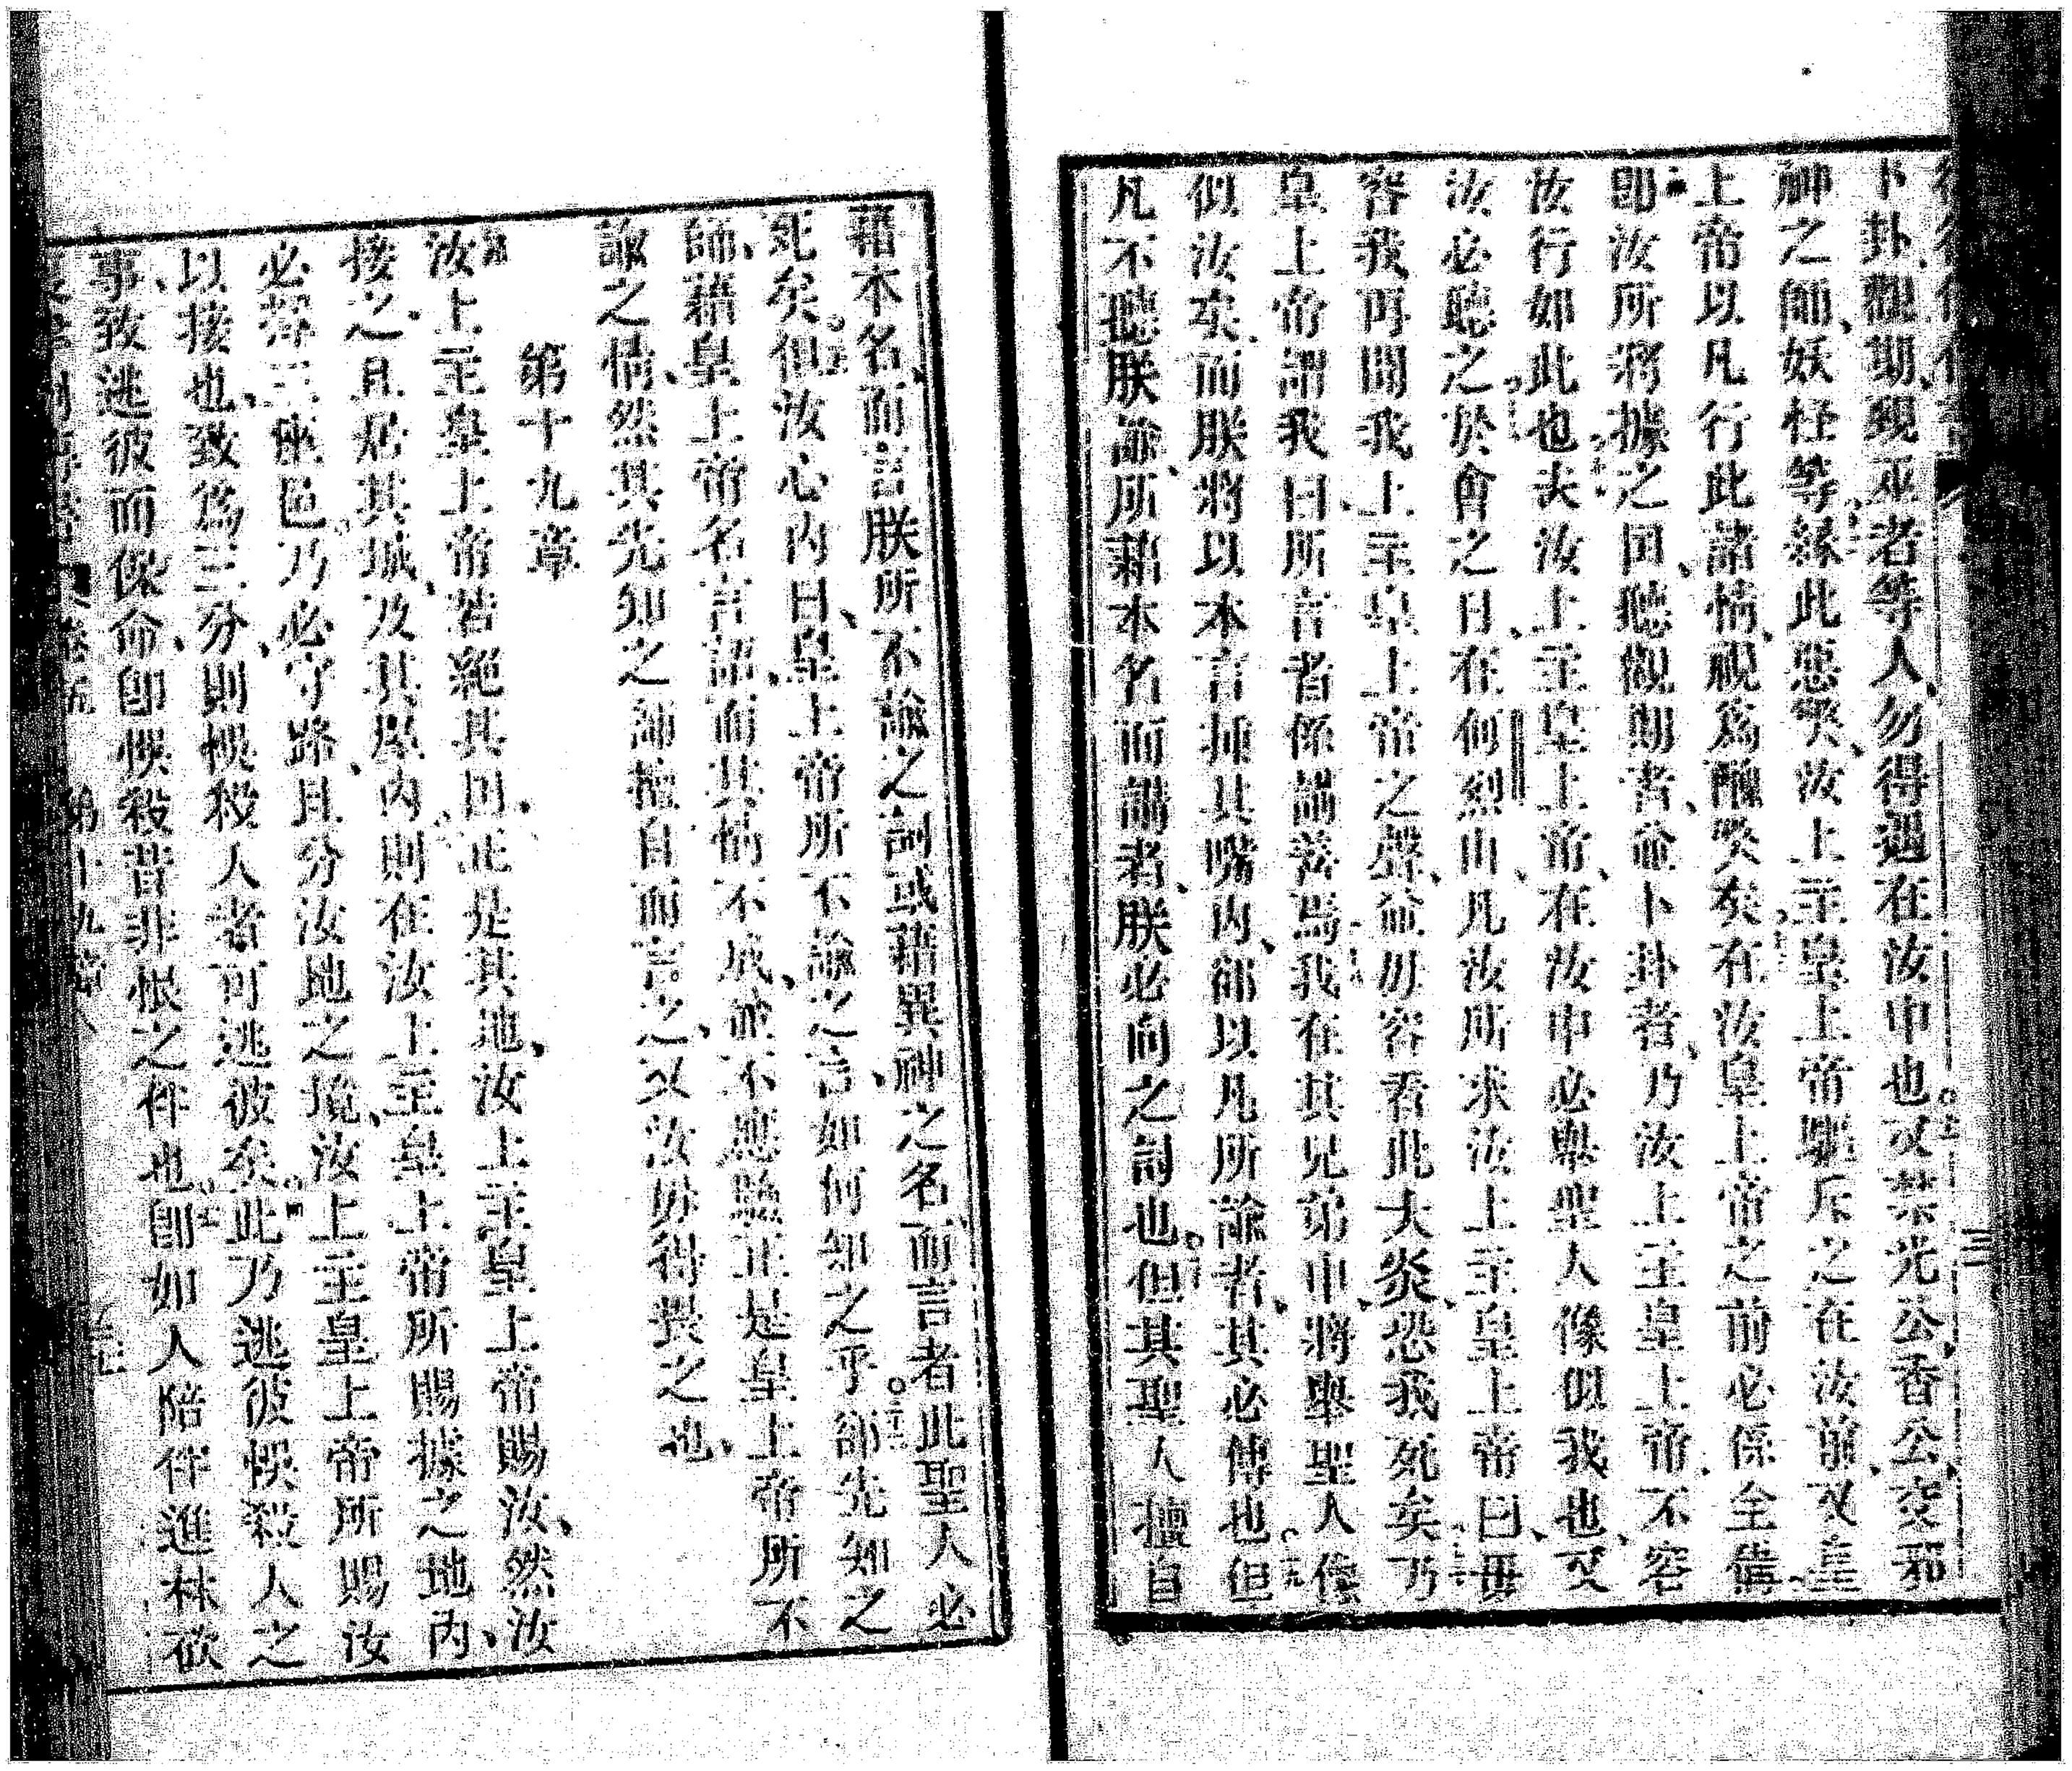 卜卦觀期現巫者等人、勿得遇在汝中也又禁光公、香公、交邪
神之師、妖怪等緣此惡哭、汝上主皇上帝驅斥之在汝前、又皇
上帝以凡行此諸情、視爲醜哭矣在汝皇上帝之前必係全備、
卽汝所將據之囯、聽觀期者、並卜卦者、乃汝上主皇上帝、不容
汝行如此也夫汝上主皇上帝、在汝中必舉聖人像似我也、又
汝必聽之於會之日、在何烈山、凡汝所求汝上主皇上帝曰、毋
容我再聞我上主皇上帝之聲、並毋容看此大炎、恐我死矣乃
皇上帝謂我曰、所言者係講善焉我在其兄弟中、將舉聖人像
似汝矣、而朕將以本言挿其嘴內、郤以凡所諭者、其必傳也但
凡不聽朕諭、所藉本名而講者、朕必向之討也但其聖人擅自
藉本名而言朕所不諭之詞或藉異神之名而言者此聖人必
死矣但汝心內曰、皇上帝所不諭之言、如何知之乎郤先知之
師、藉皇上帝名言詔、而其情不成、並不應驗正是皇上帝所不
諭之情、然其先知之師擅自而言之、又汝毋得畏之也、
第十九章
汝上主皇上帝若絕其囯、正是其地、汝上主皇上帝賜汝、然汝
接之、且居其城、及其屋內、則在汝上主皇上帝所賜據之地內、
必擇三座邑乃必守路、且分汝地之境、汝上主皇上帝所賜汝
以接也、致爲三分、則悞殺人者可逃彼矣此乃逃彼悞殺人之
事、致逃彼而保命、卽悞殺昔非恨之伴也卽如人陪伴進林砍
第十九章